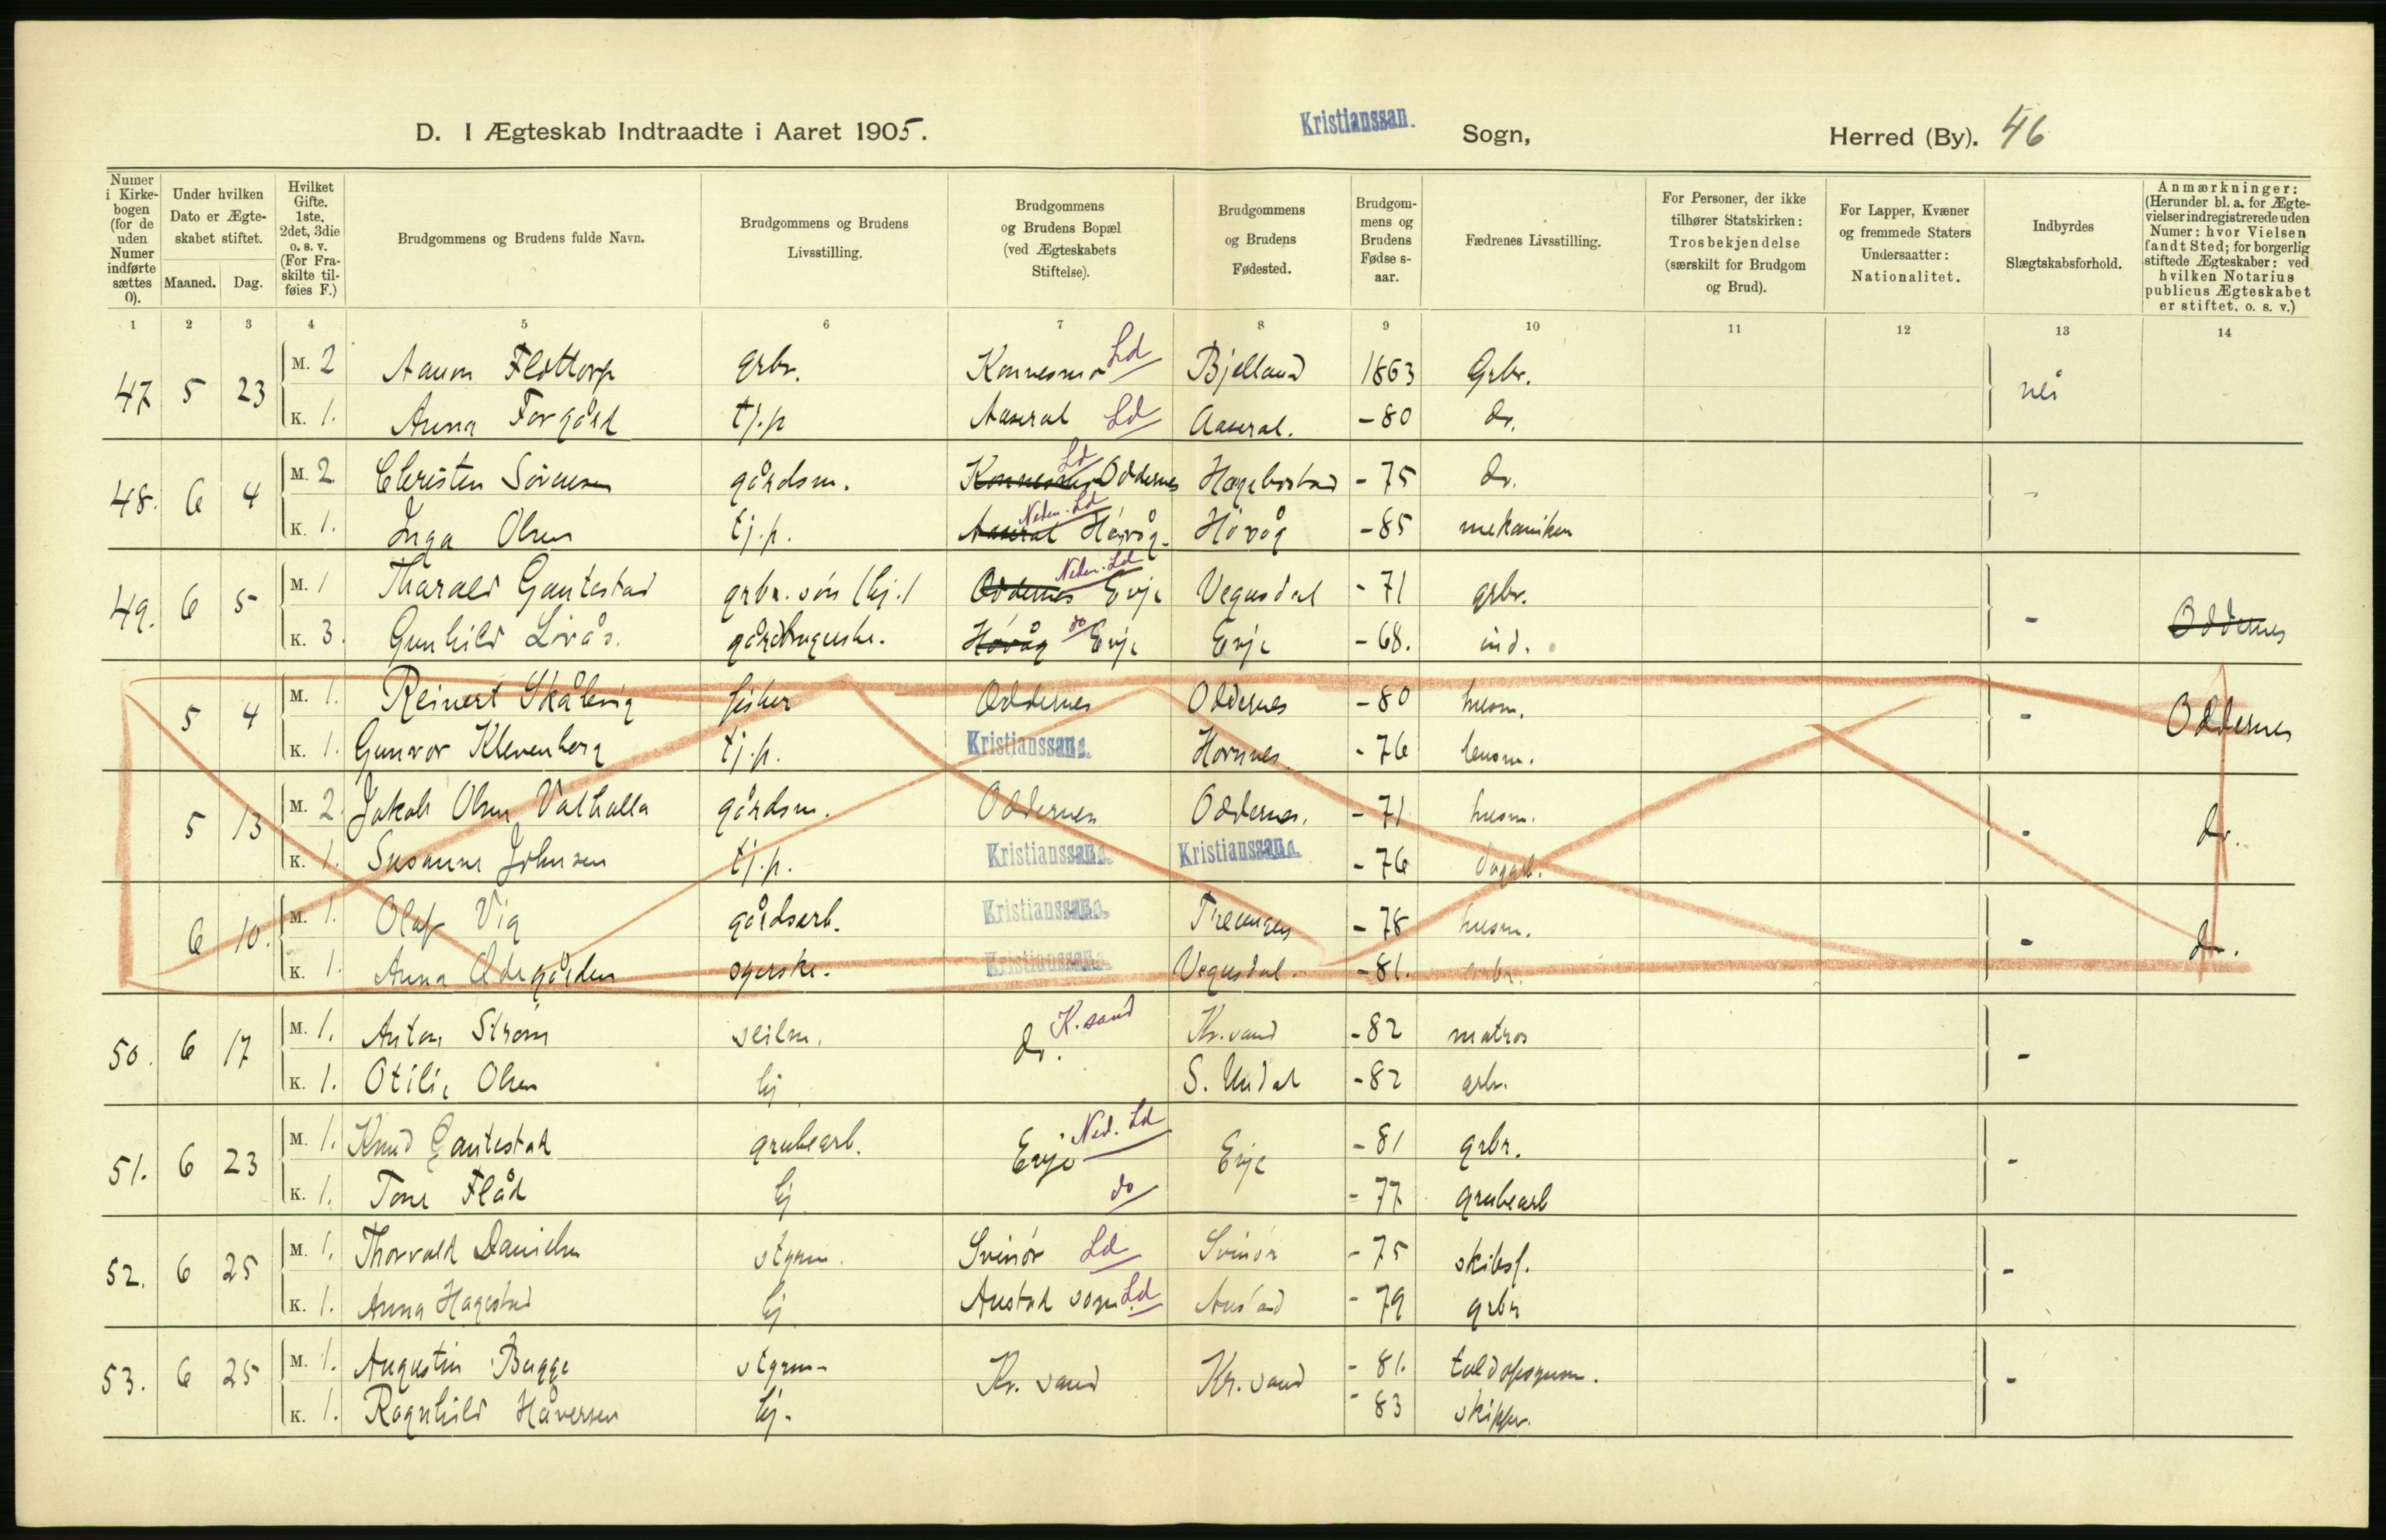 D. I Ægteskab Indtraadte i Aaret 1905. Kristianssan. Sogn, Herred (By). 46
Numer i Kirkebogen (for de uden Numer indførte sættes 0). Under hvilken Dato er Ægteskabet stiftet. Maaned. Dag. Hvilket Gifte. 1ste, 2det, 3die o. s. v. (For Fraskilte tilføies F.) Brudgommens og Brudens fulde Navn. Brudgommens og Brudens Livsstilling. Brudgommens og Brudens Bopæl (ved Ægteskabets Stiftelse). Brudgommens og Brudens Fødested. Brudgommens og Brudens Fødse s-aar. Fædrenes Livsstilling. For Personer, der ikke tilhører Statskirken: Trosbekjendelse (særskilt for Brudgom og Brud). For Lapper, Kvæner og fremmede Staters Undersaatter: Nationalitet. Indbyrdes Slægtskabsforhold. Anmærkninger: (Herunder bl. a. for Ægtevielser indregistrerede uden Numer: hvor Vielsen fandt Sted; for borgerlig stiftede Ægteskaber: ved hvilken Notarius publicus Ægteskabet er stiftet, o. s. v.)
1 2 3 4 5 6 7 8 9 10 11 12 13 14
47 5 23 M. 2 Aanon Flottorp grbr. Konnesmo Ld Bjelland 1863 Grbr. nei
K. 1. Anna Forgård tj.p Aaseral Ld Aaseral. -80 do.
48. 6 4 M. 2 Christen Sörensen gårdsm. Konnesmo Ld Oddernes Hægebostad -75 do. -
K. 1. Inga Olsen tj.p. Aaseral Neden. Ld Hövåg. Hövåg -85 mekaniker
49. 6 5 M. 1 Tharald Gautestad grbr. sön (hj.) Oddernes Neden. Ld Evje Vegusdal -71 grbr. - Oddernes
K. 3. Gunhild Lövås. gårdbrugerske. Hövåg do Evje Evje -68. ind.
5 4 M. 1. Reinert Skålevig fisker Oddernes Oddernes -80 husm. - Oddernes
K. 1. Gunvor Klevenberg tj.p. Kristianssand. Hornnes -76 lensm.
5 13 M. 2. Jakob Olsen Valhalla gårdsm. Oddernes Oddernes. -71 husm. - do.
K. 1. Susanne Johnsen tj.p. Kristianssand. Kristianssand. -76 dagarb.
6 10. M. 1. Olaf Vig gårdsarb. Kristianssand. Treungen -78 husm. - do.
K. 1. Anna Ødegården syerske. Kristianssand. Vegusdal. -81. grbr.
50. 6 17 M. 1. Anton Ström seilm. do. K.sand Kr.sand -82 matros -
K. 1. Otilie Olsen hj S. Undal -82 grbr.
51. 6 23 M. 1. Knud Gautestad grubearb. Evje Ned. Ld Evje -81 grbr. -
K. 1. Tone Flåd hj do -77 grubearb
52. 6 25 M. 1. Thorvald Danielsen stgrm. Svinör Ld Svinör -75 skibsf. -
K. 1. Anna Hagestad hj Austad sogn Ld Austad -79 grbr
53. 6 25 M. 1. Augustin Bugge stgrm- Kr. sand Kr. sand -81. toldopsynsm. -
K. 1. Ragnhild Håversen hj. -83 skipper.